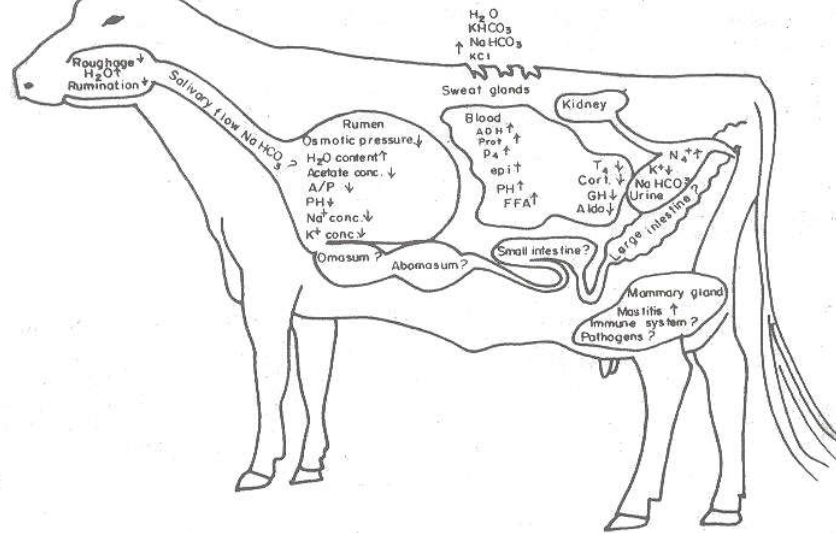 H2O
KHCO3
↑ NaHCO3
KCl
Sweat glands
Roughage ↓
H2O ↑
Rumination ↓
Salivary flow NaHCO3 ?
Rumen
Osmotic pressure ↓
H2O content ↑
Acetate conc. ↓
A/P ↓
PH ↓
Na+ conc. ↓
K+ conc. ↓
Omasum ?
Abomasum ?
Blood
ADH ↑
Prot ↑
P4 ↑
epi ↑
PH ↑
FFA ↑
T4 ↓
Cort. ↓
GH ↓
Aldo ↓
Kidney
N4+ ↑
K+ ↓
NaHCO3
Urine
Large intestine ?
Small intestine ?
Mammary gland
Mastitis ↑
Immune system ?
Pathogens ?